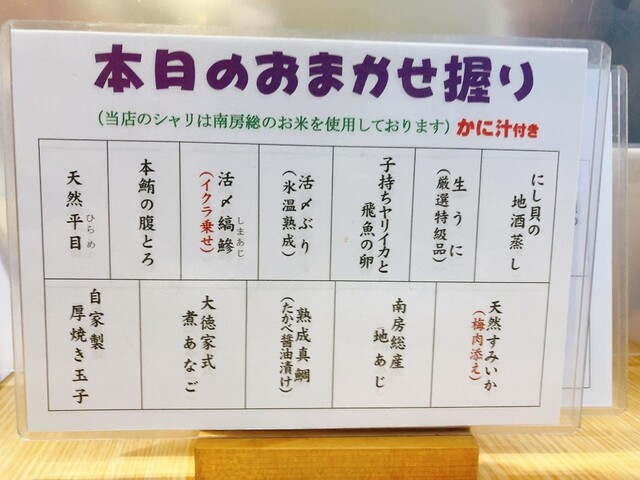 本日のおまかせ握り
(当店のシャリは南房総のお米を使用しております)かに汁付き
にし貝の
地酒蒸し
生うに
(厳選特級品)
子持ちヤリイカと
飛魚の卵
活〆ぶり
(氷温熟成)
活〆縞鯵
しまあじ
(イクラ乗せ)
本鮪の腹とろ
天然平目
ひらめ
天然すみいか
(梅肉添え)
南房総産
地あじ
熟成真鯛
(たかべ醤油漬け)
大徳家式
煮あなご
自家製
厚焼き玉子